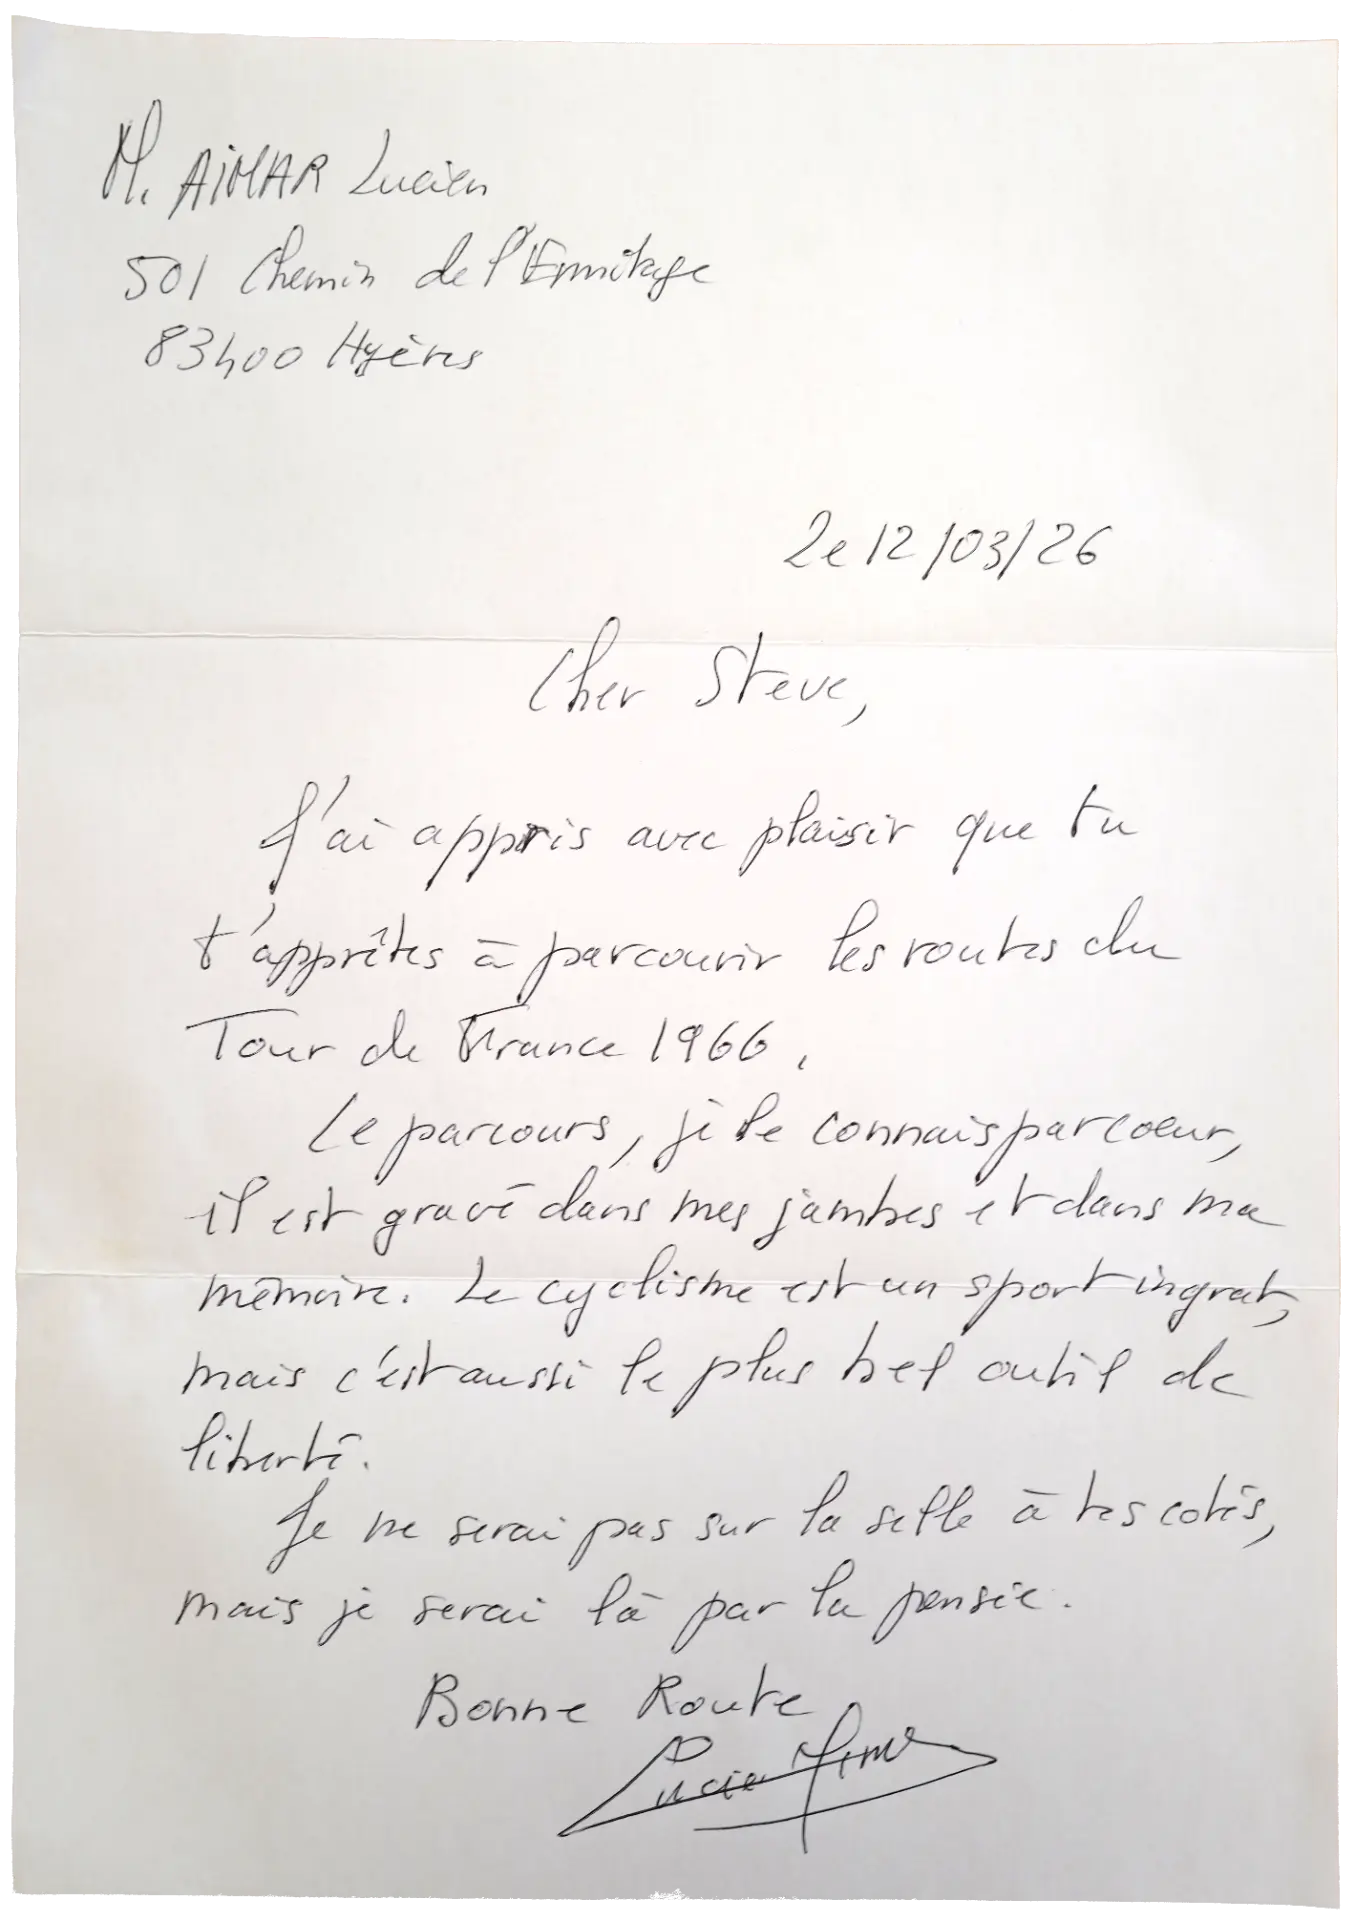 M. AIMAR Lucien
501 Chemin de l'Ermitage
83400 Hyères
Le 12/03/26
Cher Steve,
J'ai appris avec plaisir que tu
t'apprêtes à parcourir les routes du
Tour de France 1966.
Le parcours, je le connais par coeur,
il est gravé dans mes jambes et dans ma
mémoire. Le cyclisme est un sport ingrat,
mais c'est aussi le plus bel outil de
liberté.
Je ne serai pas sur la selle à tes cotés,
mais je serai là par la pensée.
Bonne Route
Lucien Aimar